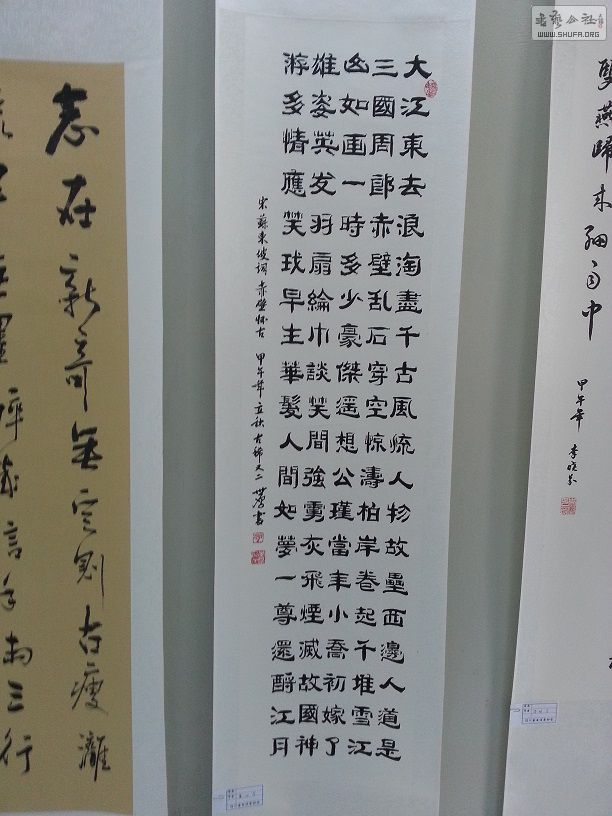 書藝公社
WWW.SHUFA.ORG
雙燕歸来細雨中
甲午年 李
大江東去浪淘盡千古風流人物故壘西邊人道是
三國周郎赤壁乱石穿空惊濤柏岸卷起千堆雪江
山如画一時多少豪傑遥想公瑾當年小喬初嫁了
雄姿英发羽扇綸巾談笑間強虜灰飛煙滅故國神
游多情應笑我早生華髮人間如夢一尊還酹江月
宋蘇東坡詞赤壁怀古 甲午年立秋古稀又二 世 書
志在新奇無定則古瘦漓
半無墨醉来信手兩三行